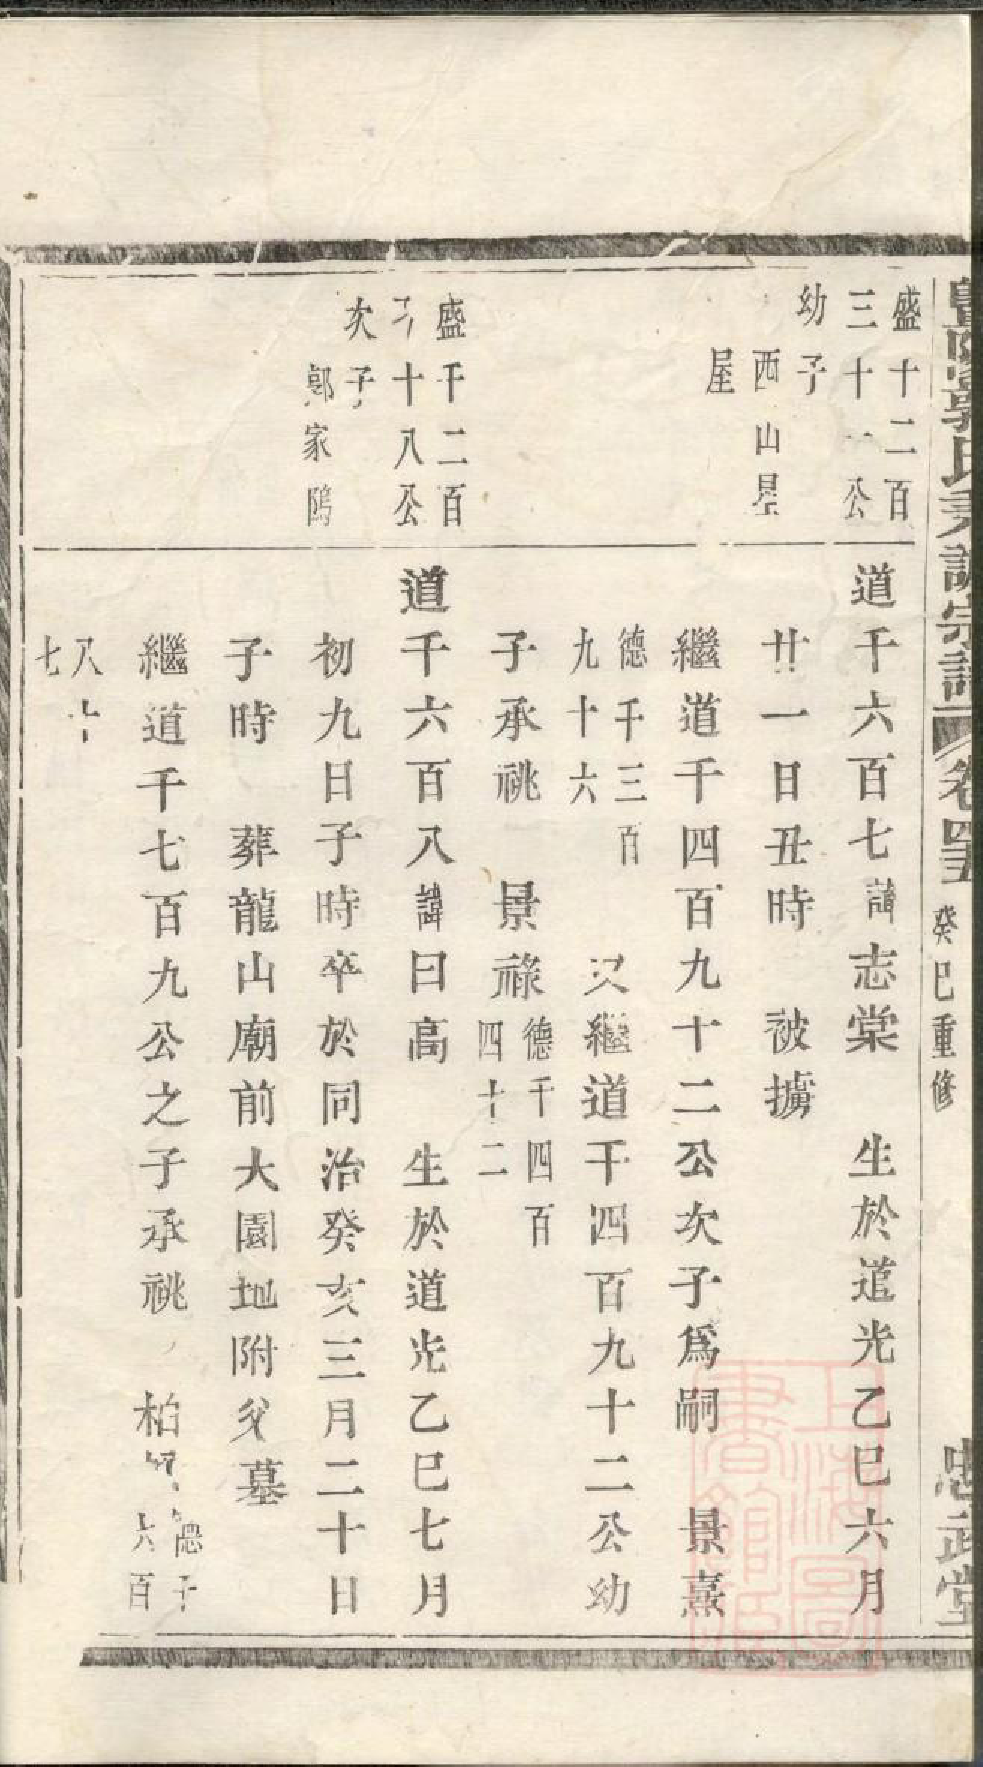 暨陽郭氏 宗譜 卷四五 癸巳重修 忠武堂
盛十二百
三十一公
幼子
西山
屋
道千六百七諱志棠 生於道光乙巳六月
廿一日丑時 被擄
繼道千四百九十二公次子爲嗣 景熹
德千三百
九十六
又繼道千四百九十二公幼
子承祧 景祿德千四百
四十二
盛千二百
十八公
次子
郭家隖
道千六百八諱曰高 生於道光乙巳七月
初九日子時卒於同治癸亥三月二十日
子時 葬龍山廟前大園地附父墓
繼道千七百九公之子承祧 柏
德千
六百
八十
七
上海圖書館藏